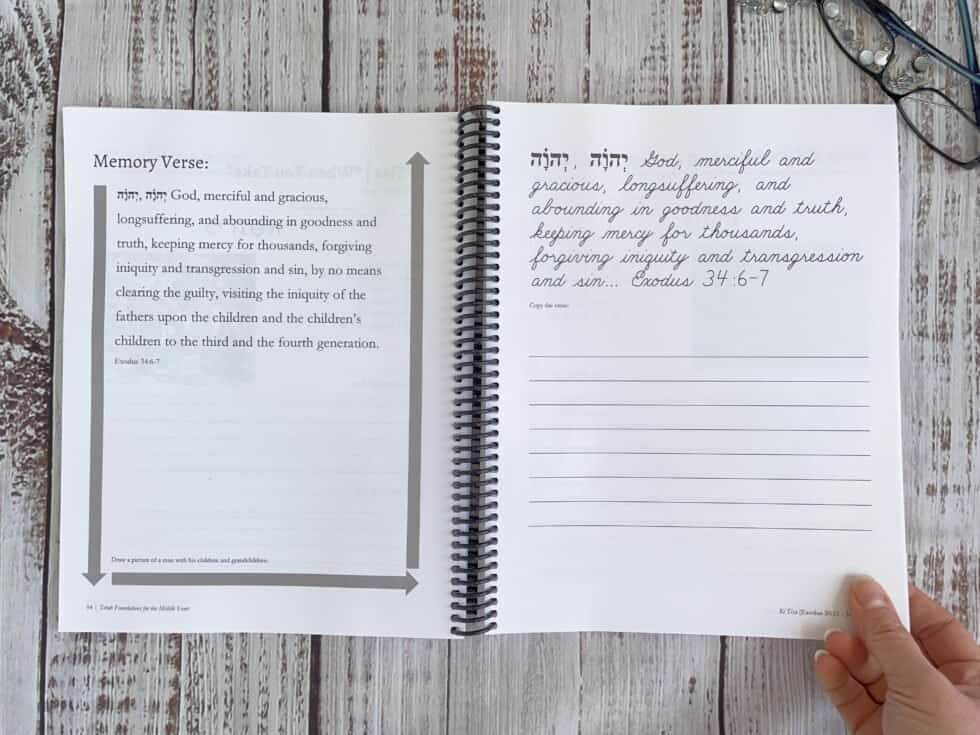 Memory Verse:
יְהוָֹה, יְהוָֹה God, merciful and gracious,
longsuffering, and abounding in goodness and
truth, keeping mercy for thousands, forgiving
iniquity and transgression and sin, by no means
clearing the guilty, visiting the iniquity of the
fathers upon the children and the children's
children to the third and the fourth generation.
Exodus 34:6-7
Draw a picture of a man with his children and grandchildren.
94 | Torah Foundations for the Middle Years
יְהוָֹה, יְהוָֹה God, merciful and
gracious, longsuffering, and
abounding in goodness and truth,
keeping mercy for thousands,
forgiving iniquity and transgression
and sin... Exodus 34:6-7
Copy the verse:
Ki Tisa (Exodus 30:11 -